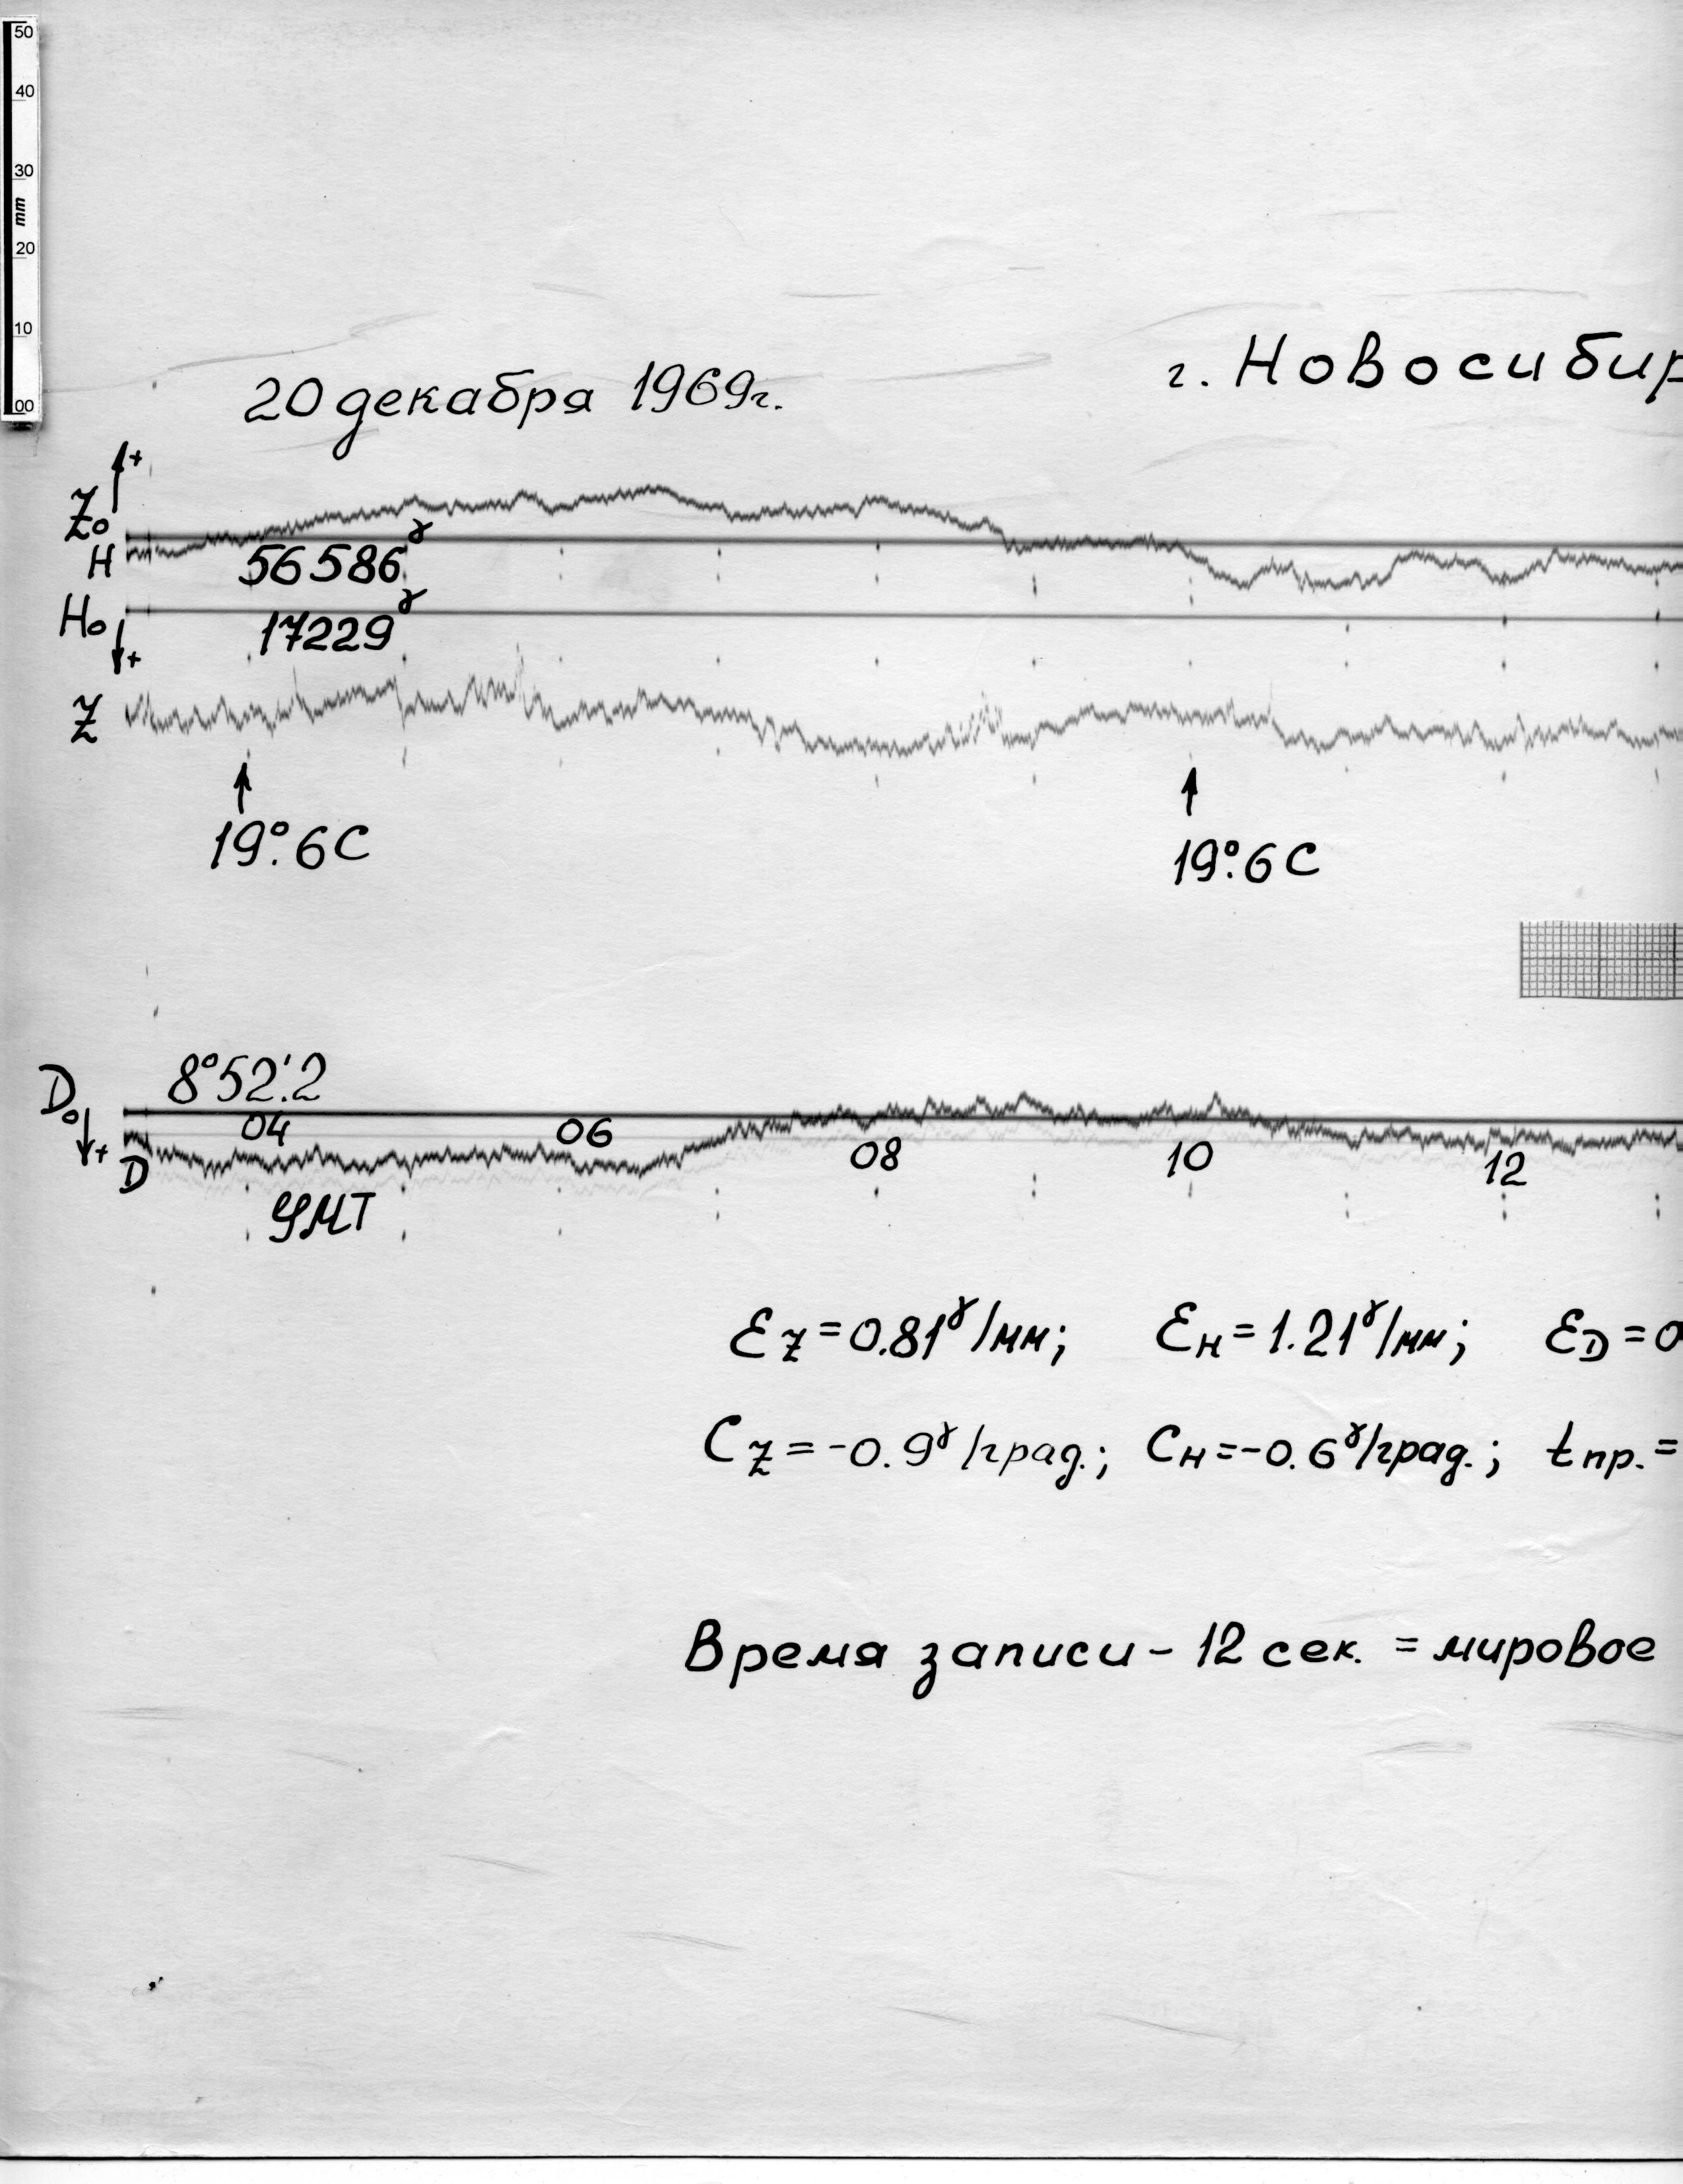 50
40
30
mm
20
10
00
20 декабря 1969г.
г. Новосибир
+
Z₀
H
56586ᵞ
H₀
17229ᵞ
+
Z
19°.6 C
19°.6 C
8°52'.2
D₀
+
D
04
06
08
10
12
GMT
Ɛz = 0.81ᵞ/мм; Ɛн = 1.21ᵞ/мм; ƐD = 0
Cz = -0.9ᵞ/град.; Cн = -0.6ᵞ/град.; tпр. =
Время записи - 12 сек. = мировое